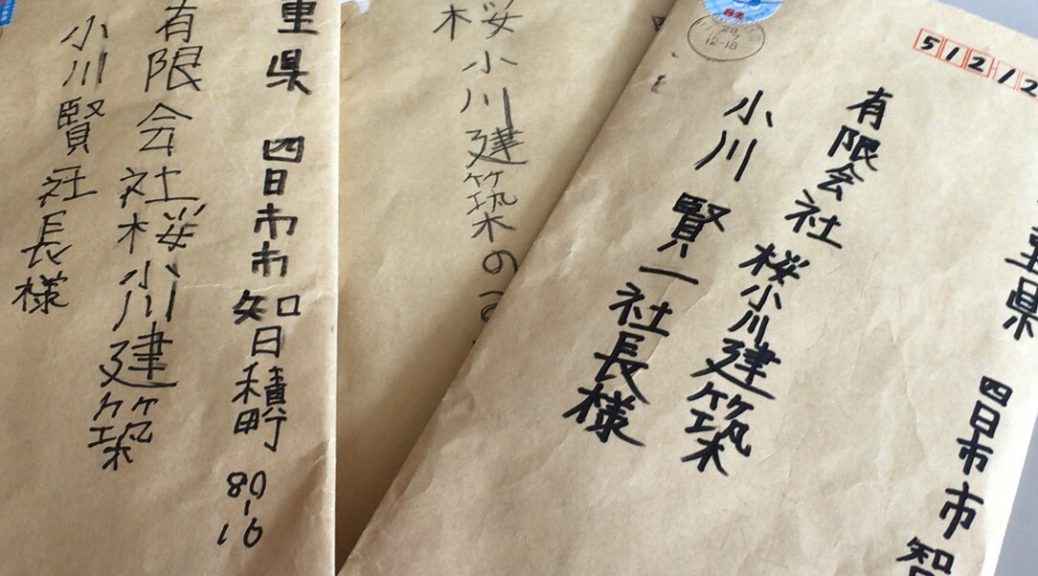 重県 四日市市 智積町 80-16
有限会社桜小川建築
小川賢社長様
桜小川建築の
512 12
重県 四日市市 智
有限会社 桜小川建築
小川 賢一社長様
12-18